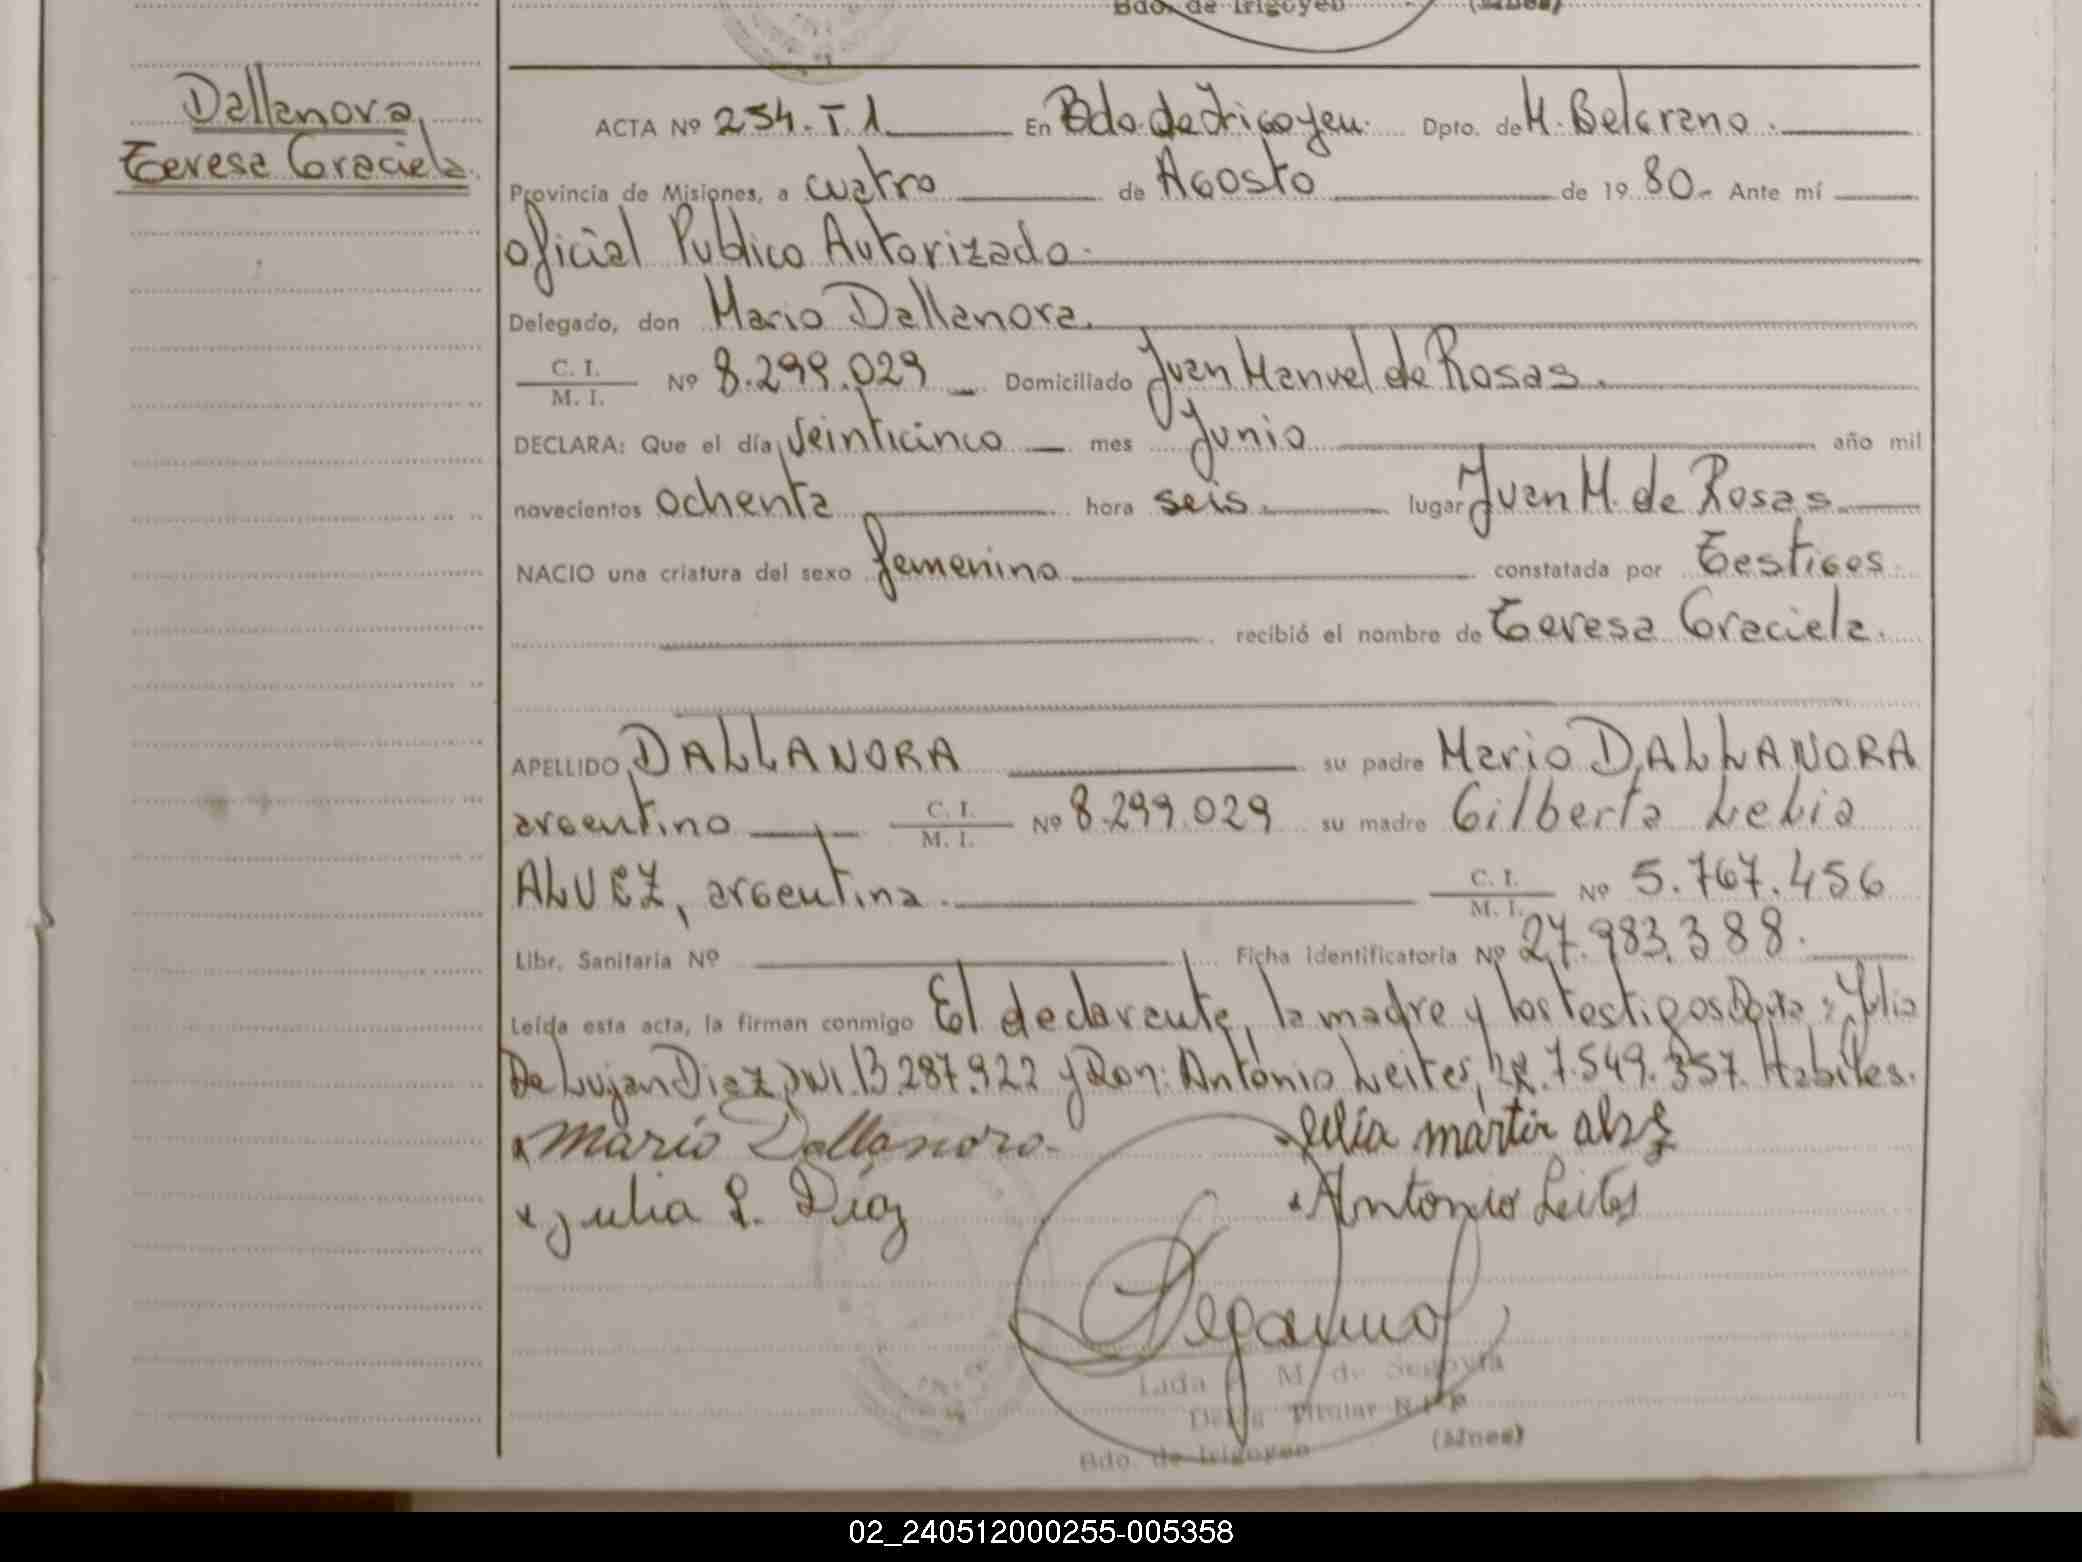 Bdo. de Irigoyen (Mnes)
Dallanora
Teresa Graciela.
ACTA Nº 254. T 1 En Bdo. de Irigoyen. Dpto. de M. Belgrano.
Provincia de Misiones, a cuatro de Agosto de 1980.- Ante mí
oficial Publico Autorizado.
Delegado, don Mario Dallanora.
C. I. / M. I. Nº 8.299.029 Domiciliado Juan Manuel de Rosas.
DECLARA: Que el día veinticinco mes Junio año mil
novecientos ochenta hora seis. lugar Juan M. de Rosas
NACIO una criatura del sexo femenino constatada por Testigos
recibió el nombre de Teresa Graciela.
APELLIDO DALLANORA su padre Mario DALLANORA
argentino C. I. / M. I. Nº 8.299.029 su madre Gilberta Lelia
ALVEZ, argentina. C. I. / M. I. Nº 5.767.456
Libr. Sanitaria Nº Ficha identificatoria Nº 27.983.388.
Leída esta acta, la firman conmigo El declarante, la madre y los testigos Julia
De Lujan Diaz DNI. 13.287.922 y Don: Antonio Leites, 7.549.357. Habiles.
x Mario Dallanora.
x Julia L. Díaz
Antonio Leites
Lada M de Segovia
Titular
Bdo. de Irigoyen (Mnes)
02_240512000255-005358